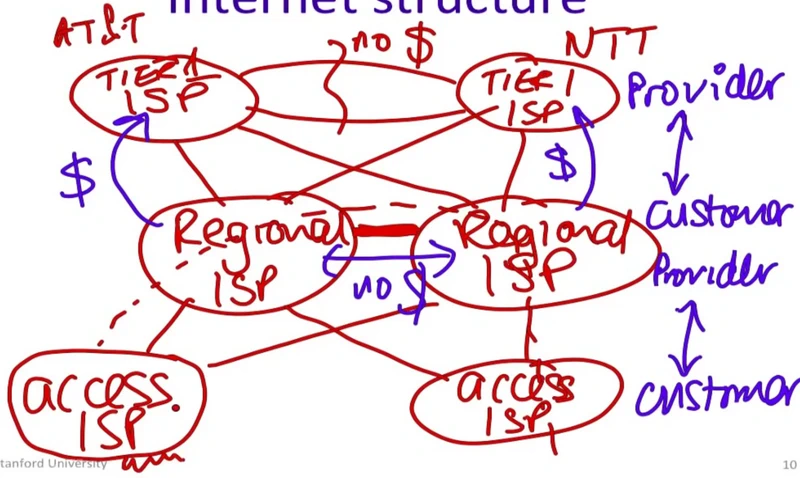 Internet structure
AT&T
no $
NTT
TIER 1
ISP
TIER 1
ISP
Provider
$
$
Customer
Regional
ISP
Regional
ISP
no $
Provider
access
ISP
access
ISP
Customer
tanford University
10